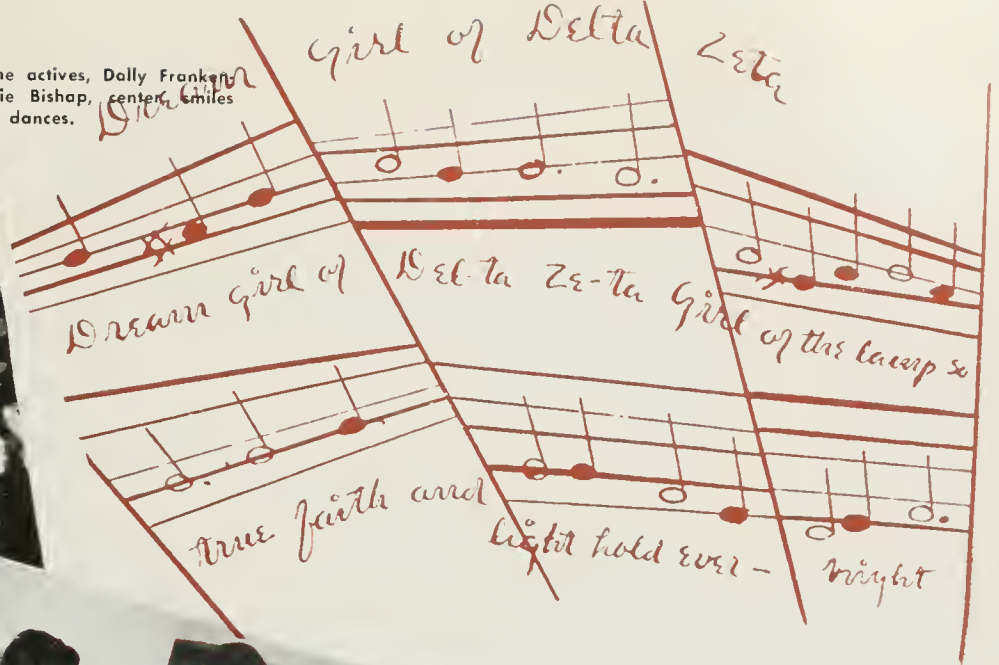 ne actives, Dolly Franken-
ie Bishop, center, smiles
dances.
Dream Girl of Delta Zeta
Dream girl of Del-ta Ze-ta Girl of the lamp so
true faith and light hold ever- bright